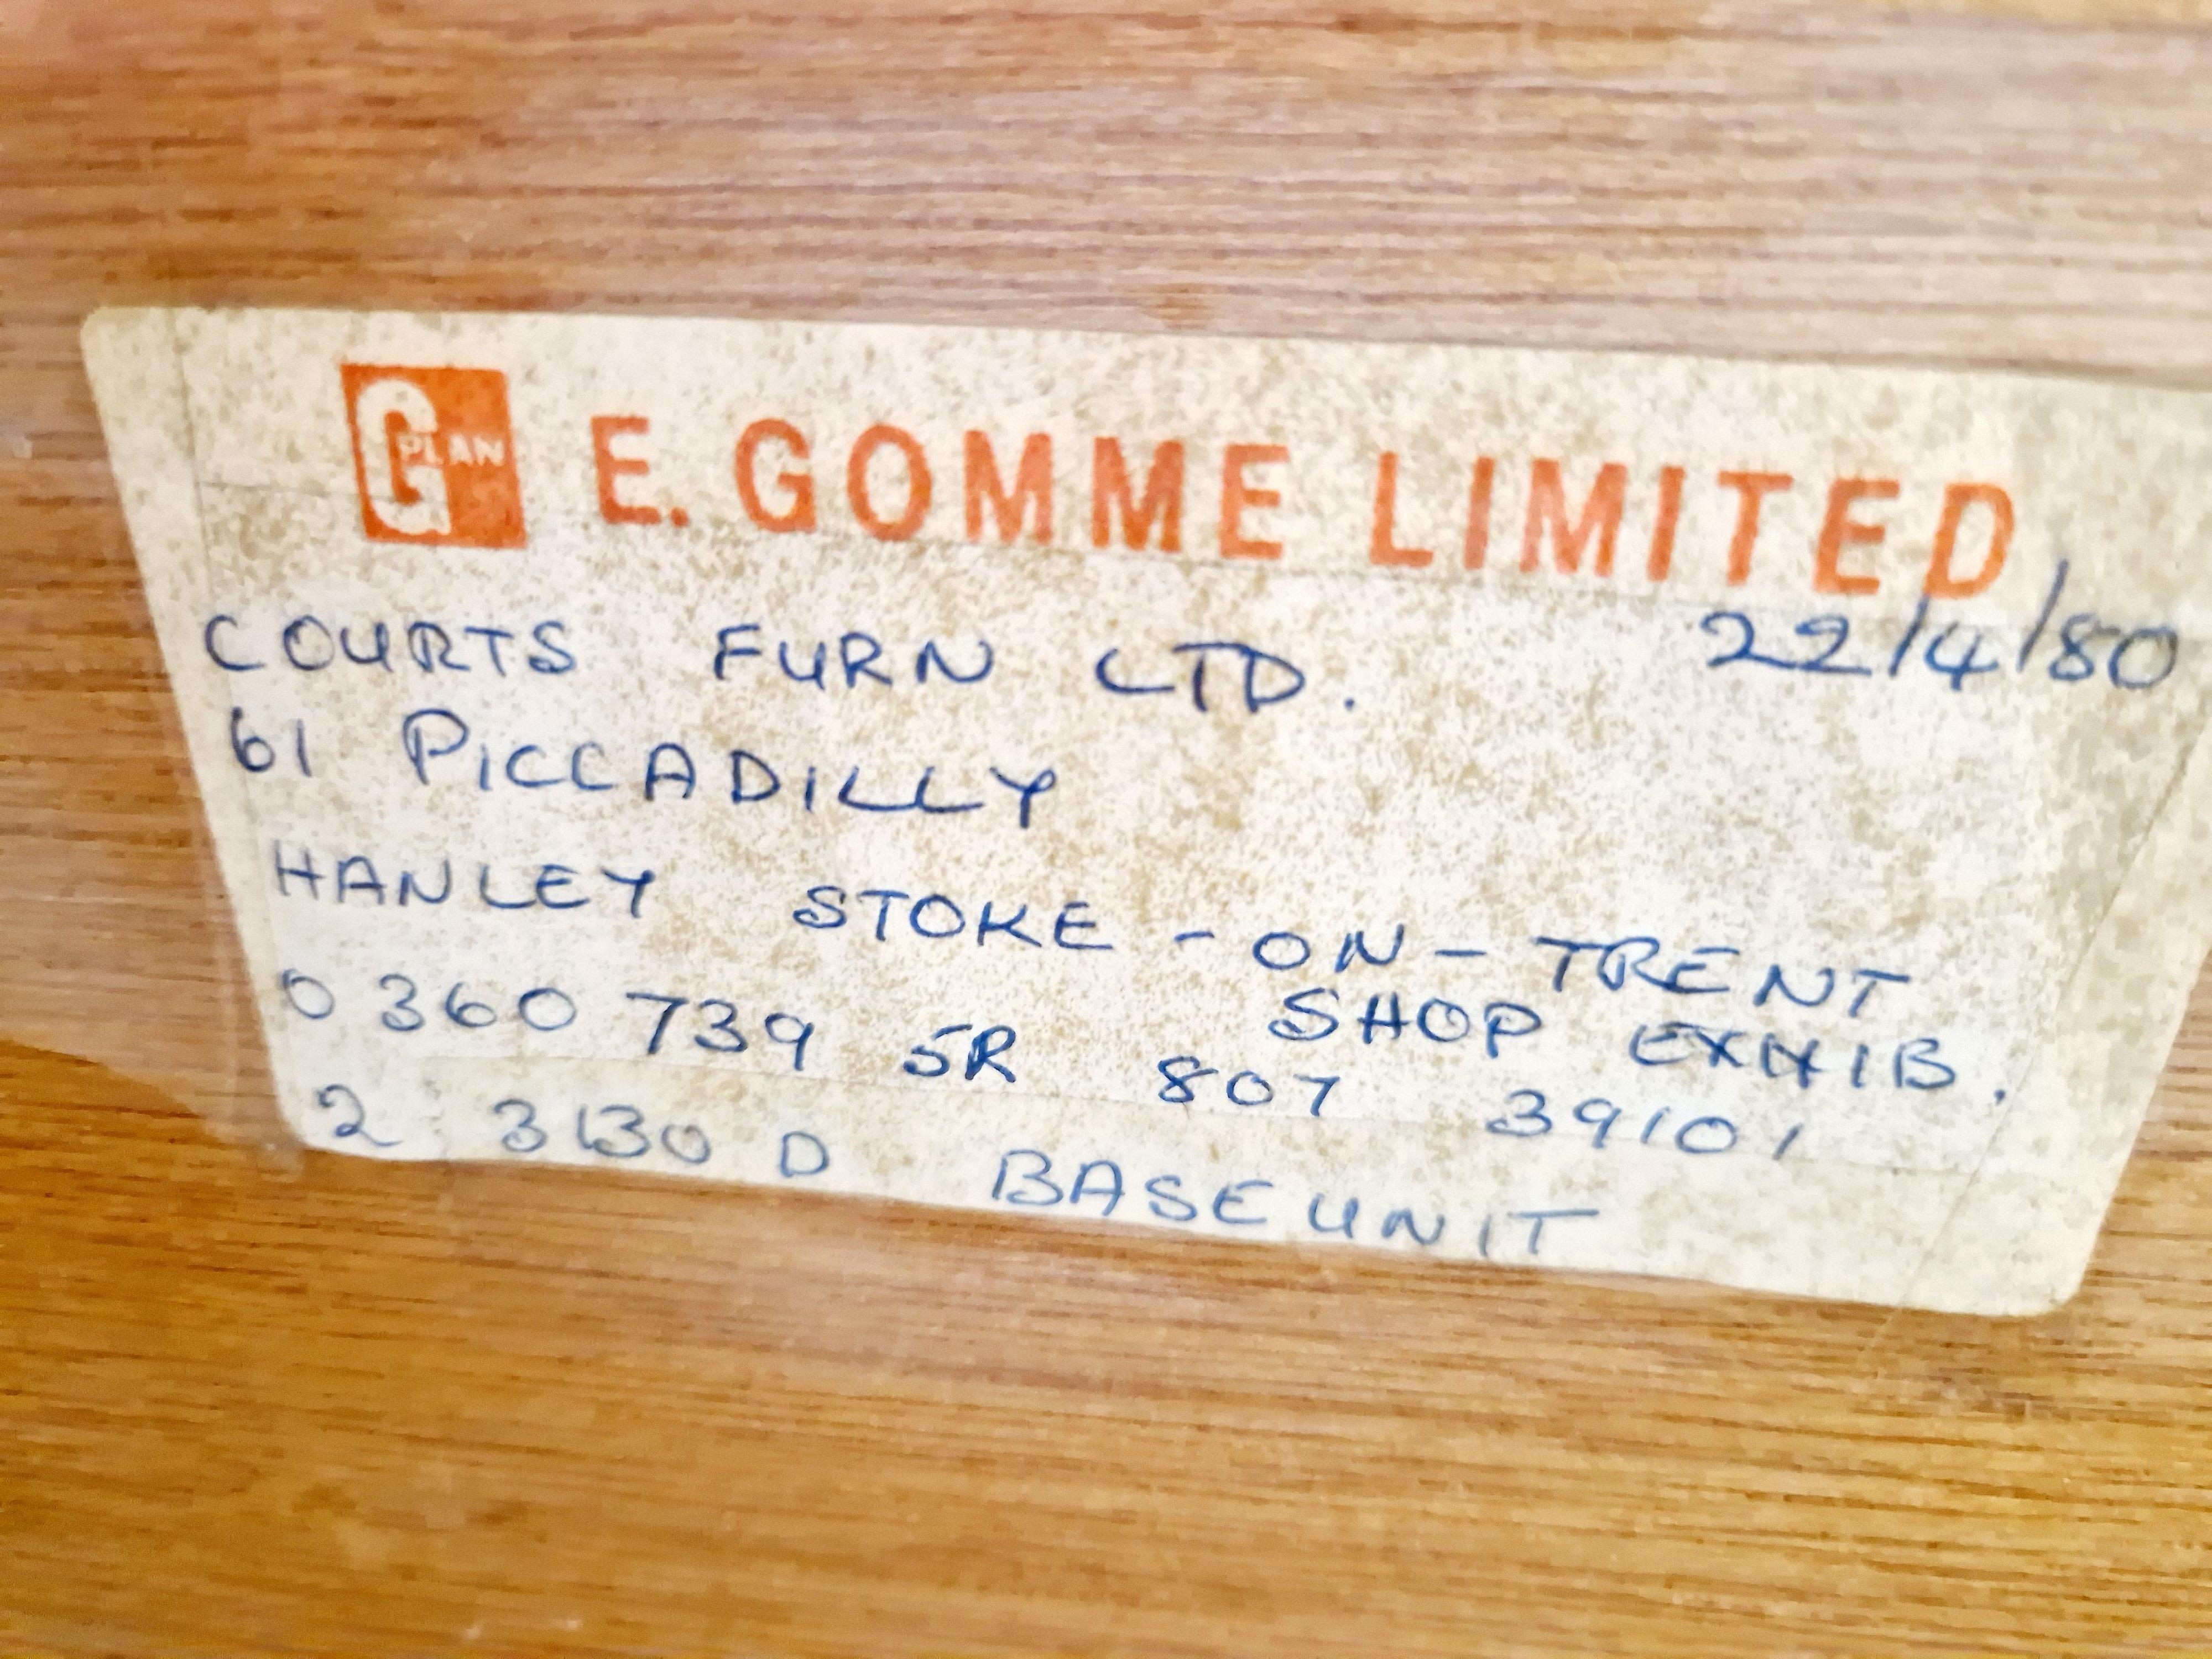 G PLAN E. GOMME LIMITED
22/4/80
COURTS FURN LTD.
61 PICCADILLY
HANLEY STOKE-ON-TRENT
SHOP EXHIB.
0 360 739 5R 807 39101
2 3130 D BASE UNIT